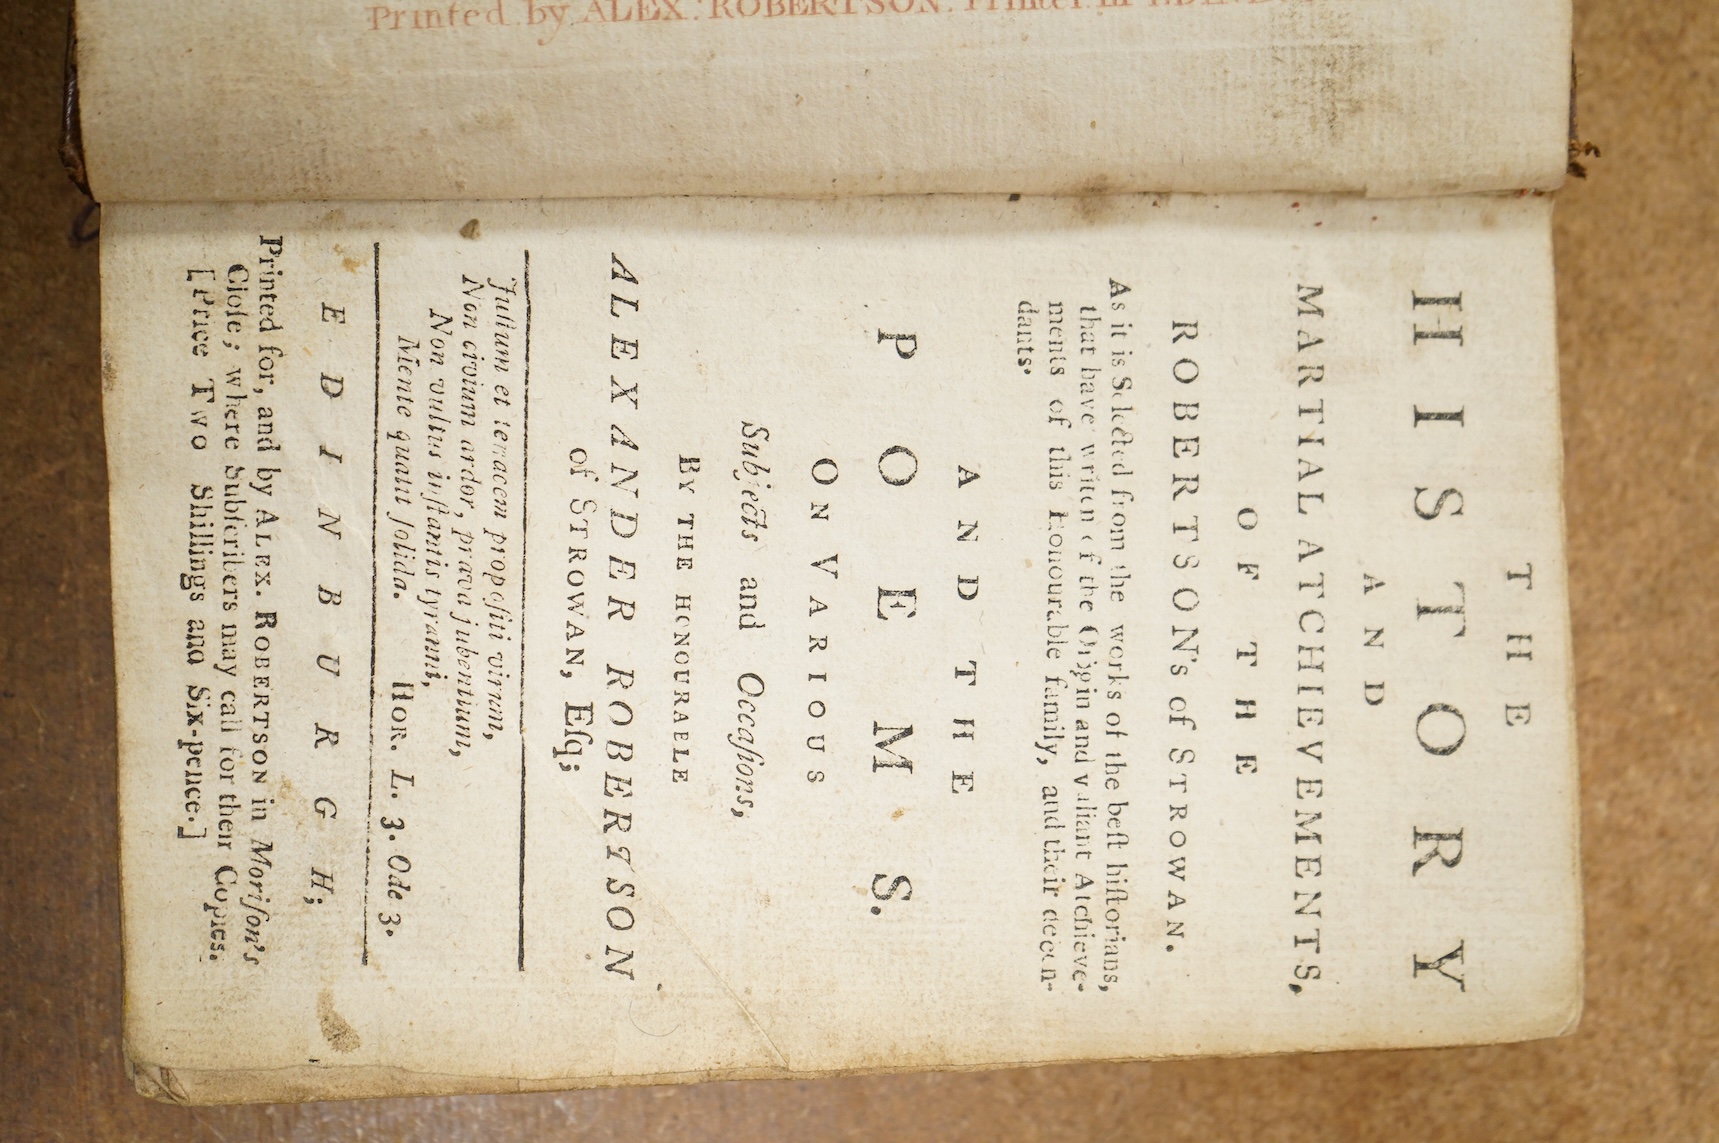 Printed by ALEX. ROBERTSON. Printer in
THE
HISTORY
AND
MARTIAL ATCHIEVEMENTS,
OF THE
ROBERTSON's of STROWAN.
As it is Selected from the works of the beſt hiſtorians,
that have writen of the Origin and valiant Atchieve-
ments of this Honourable family, and their decen-
dants.
AND THE
POEMS.
ON VARIOUS
Subjects and Occaſions,
BY THE HONOURABLE
ALEXANDER ROBERTSON
of STROWAN, Eſq;
Juſtum et tenacem propoſiti virum,
Non civium ardor, prava jubentium,
Non vultus inſtantis tyranni,
Mente quatit ſolida. HOR. L. 3. Ode 3.
EDINBURGH;
Printed for, and by ALEX. ROBERTSON in Moriſon's
Cloſe; where Subſcribers may call for their Copies.
[Price Two Shillings and Six-pence.]